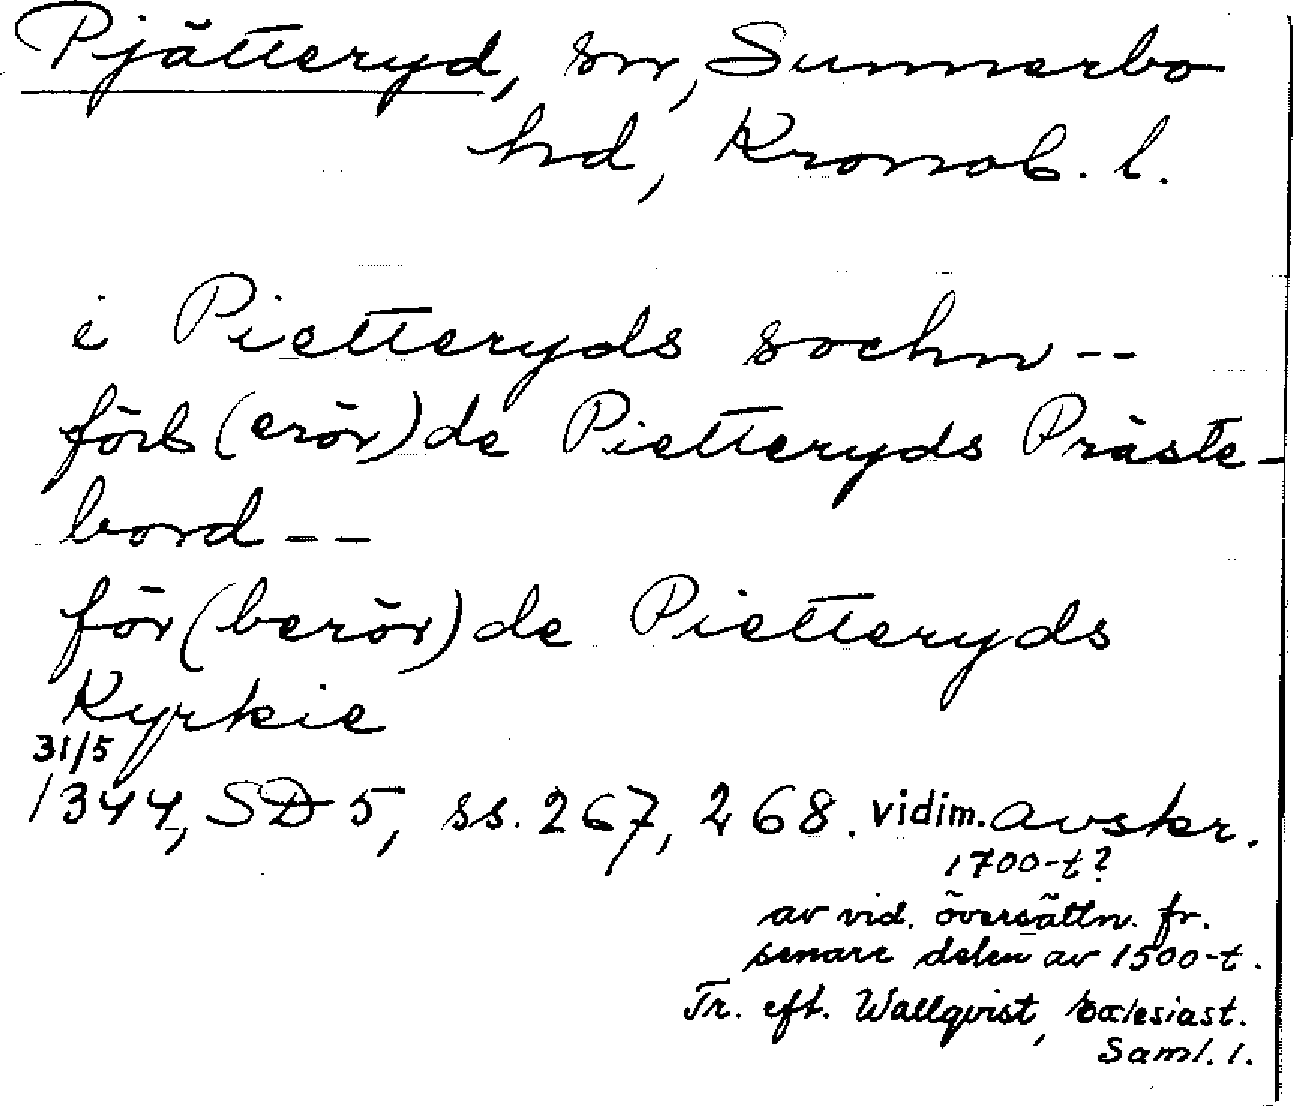 Pjätteryd, sn, Sunnerbo
hd, Kronob. l.
i Pietteryds sochn --
förb(erör)de Pietteryds Präste-
bord --
för(berör)de Pietteryds
Kyrkie
31/5
1344, SD 5, ss. 267, 268. vidim. avskr.
1700-t?
av vid. översättn. fr.
senare delen av 1500-t.
Tr. eft. Wallqvist, Ecclesiast.
Saml. 1.